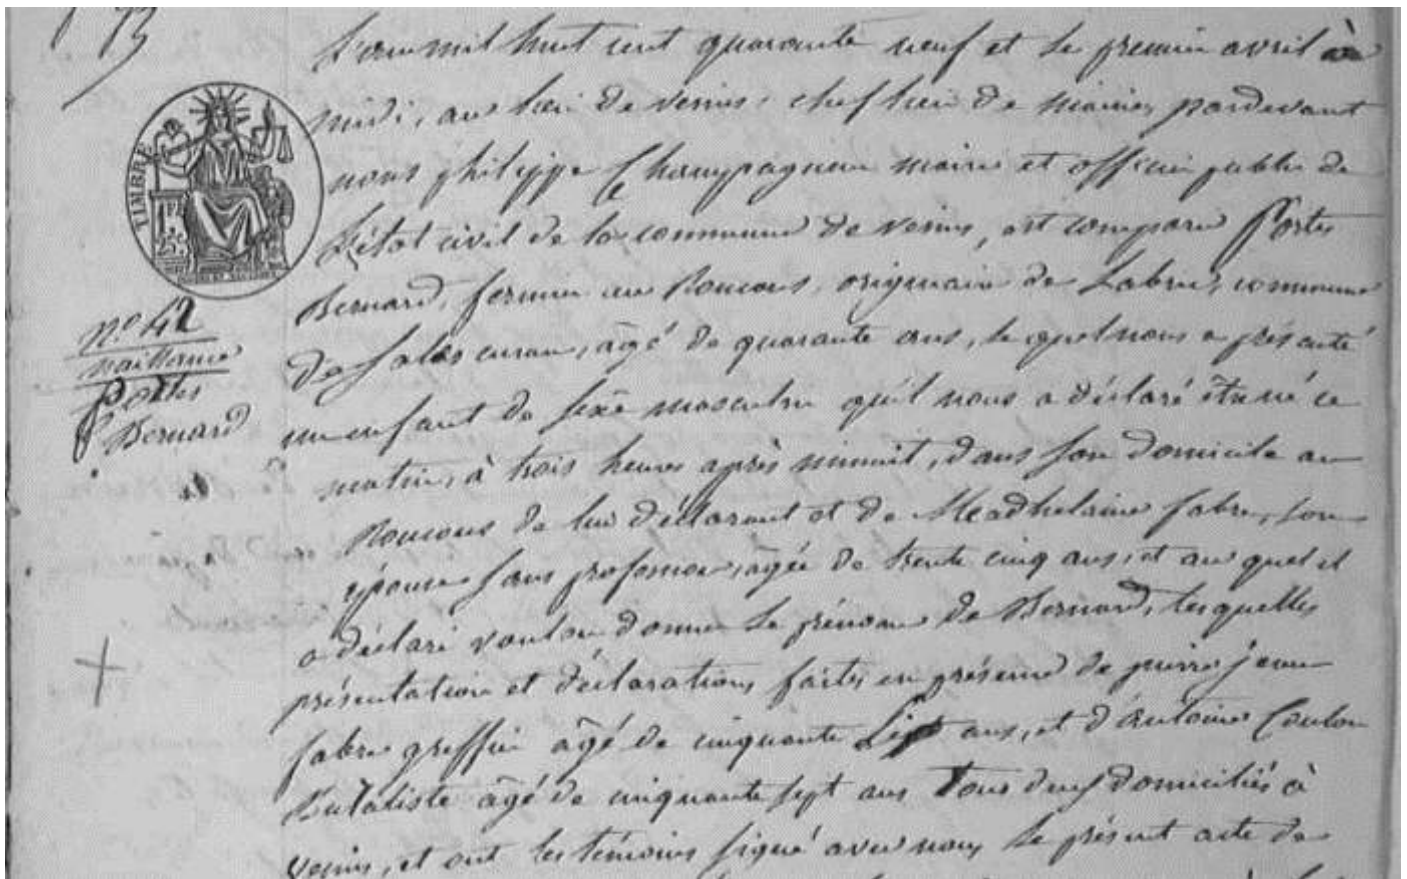 L'an mil huit cent quarante neuf et le premier avril à
midi, au lieu de vezins chef lieu de mairie, pardevant
nous philippe Champagneur maire et officier public de
L'état civil de la commune de vezins, est comparu Portes
Bernard, fermier au Roucous, originaire de Labrie, commune
de Salescuran, âgé de quarante ans, le quel nous a présenté
un enfant de sexe masculin qu'il nous a déclaré être né ce
matin, à trois heures après minuit, dans son domicile au
Roucous de lui déclarant et de Madhelaine fabre, son
épouse sans profession, agée de trente cinq ans, et au quel il
a déclaré vouloir donner le prénom de Bernard, lesquelles
présentation et déclaration, faites en présence de pierre jean
fabre greffier agé de cinquante Sept ans, et d'Antoine Coulon
Buraliste agé de cinquante sept ans Tous deux domiciliés à
vezins, et ont les témoins signé avec nous le présent acte de
TIMBRE
n° 42
naissance
Portes
Bernard